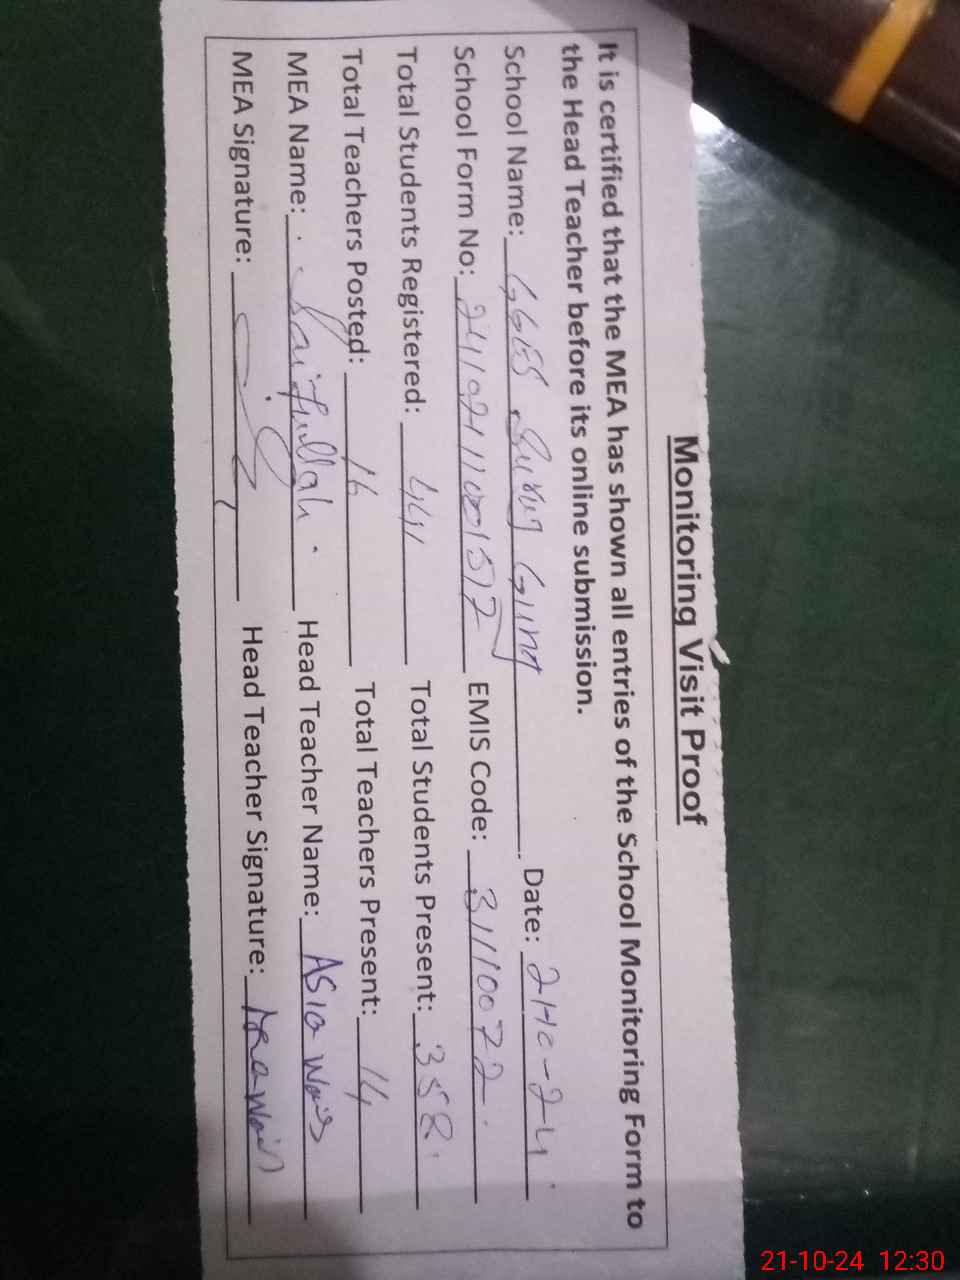 Monitoring Visit Proof
It is certified that the MEA has shown all entries of the School Monitoring Form to
the Head Teacher before its online submission.
School Name: GGES Date: 21-10-24
School Form No: EMIS Code: 31110072
Total Students Registered: 441 Total Students Present: 358
Total Teachers Posted: 16 Total Teachers Present: 14
MEA Name: Saifullah Head Teacher Name: ASIA Wais
MEA Signature: Head Teacher Signature:
21-10-24 12:30